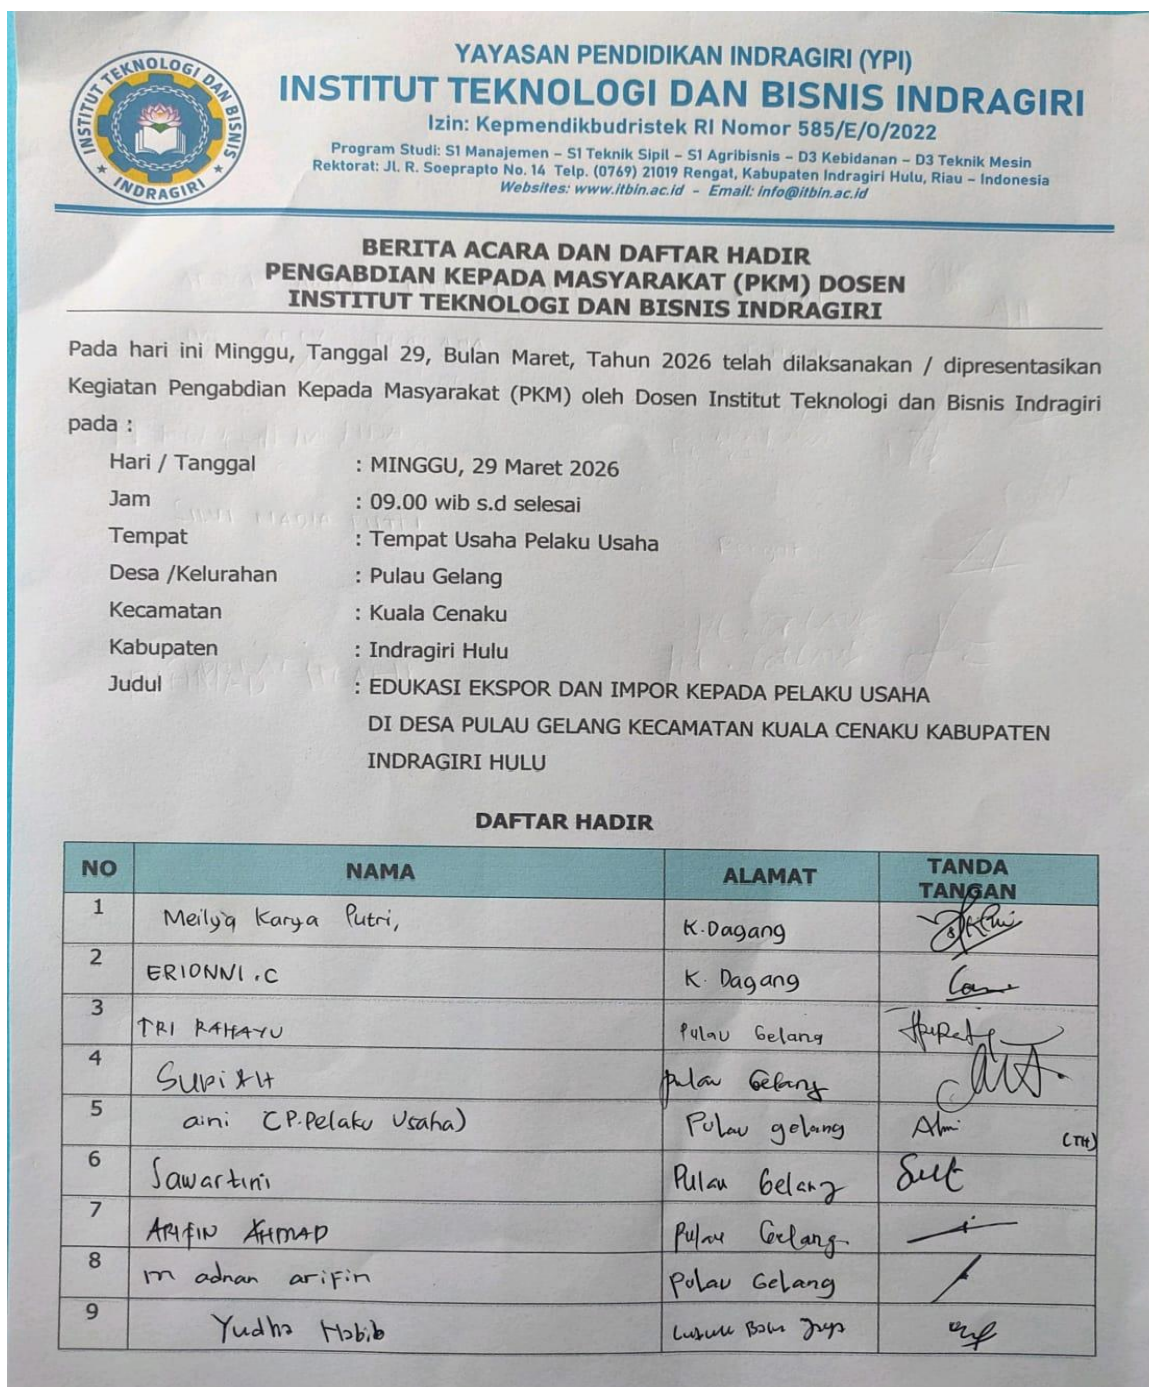 INSTITUT TEKNOLOGI DAN BISNIS
INDRAGIRI
YAYASAN PENDIDIKAN INDRAGIRI (YPI)
INSTITUT TEKNOLOGI DAN BISNIS INDRAGIRI
Izin: Kepmendikbudristek RI Nomor 585/E/O/2022
Program Studi: S1 Manajemen – S1 Teknik Sipil – S1 Agribisnis – D3 Kebidanan – D3 Teknik Mesin
Rektorat: Jl. R. Soeprapto No. 14 Telp. (0769) 21019 Rengat, Kabupaten Indragiri Hulu, Riau – Indonesia
Websites: www.itbin.ac.id - Email: info@itbin.ac.id
BERITA ACARA DAN DAFTAR HADIR
PENGABDIAN KEPADA MASYARAKAT (PKM) DOSEN
INSTITUT TEKNOLOGI DAN BISNIS INDRAGIRI
Pada hari ini Minggu, Tanggal 29, Bulan Maret, Tahun 2026 telah dilaksanakan / dipresentasikan
Kegiatan Pengabdian Kepada Masyarakat (PKM) oleh Dosen Institut Teknologi dan Bisnis Indragiri
pada :
Hari / Tanggal : MINGGU, 29 Maret 2026
Jam : 09.00 wib s.d selesai
Tempat : Tempat Usaha Pelaku Usaha
Desa /Kelurahan : Pulau Gelang
Kecamatan : Kuala Cenaku
Kabupaten : Indragiri Hulu
Judul : EDUKASI EKSPOR DAN IMPOR KEPADA PELAKU USAHA
DI DESA PULAU GELANG KECAMATAN KUALA CENAKU KABUPATEN
INDRAGIRI HULU
DAFTAR HADIR
NO NAMA ALAMAT TANDA TANGAN
1 Meilya Karya Putri, K.Dagang
2 ERIONNI.C K. Dagang
3 TRI RAHAYU Pulau Gelang
4 SUPIAH pulau Gelang
5 aini (P.Pelaku Usaha) Pulau gelang (TH)
6 Sawartini Pulau Gelang
7 ARIFIN AHMAD Pulau Gelang.
8 m adnan arifin Pulau Gelang
9 Yudha Habib